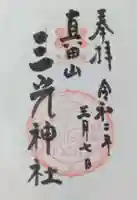 奉拝
令和二年
三月七日
真田山
三光神社